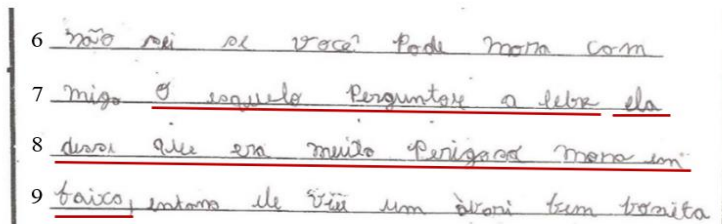 6 não sei se você pode mora com
7 migo O esquelo Perguntose a lebre ela
8 dessi que era muito Perigoso mora em
9 baixo, entano ele viu um àvori bem bonita